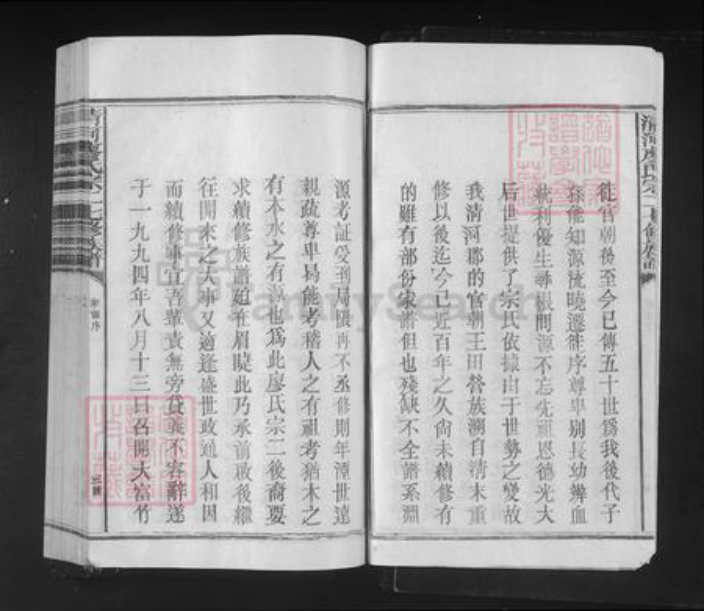 徙官朝後至今已傳五十世爲我後代子
孫能知源流曉遷徙序尊卑别長幼辨血
統利優生尋根問源不忘先祖恩德光大
后世提供了宗氏依據由于世勢之變故
我清河郡的官朝王田營族溯自清末重
修以後迄今已近百年之久尚未續修有
的雖有部份家譜但也殘缺不全譜系淵
源考証受到局限再不丞修則年湮世遠
親疏尊卑易能考稽人之有祖考猶木之
有本水之有源也爲此廖氏宗二後裔要
求續修族譜廹在眉睫此乃承前啟後繼
往開來之大事又適逢盛世政通人和因
而續修事宜吾輩責無旁貸義不容辭遂
于一九九四年八月十三日召開大富竹
FamilySearch